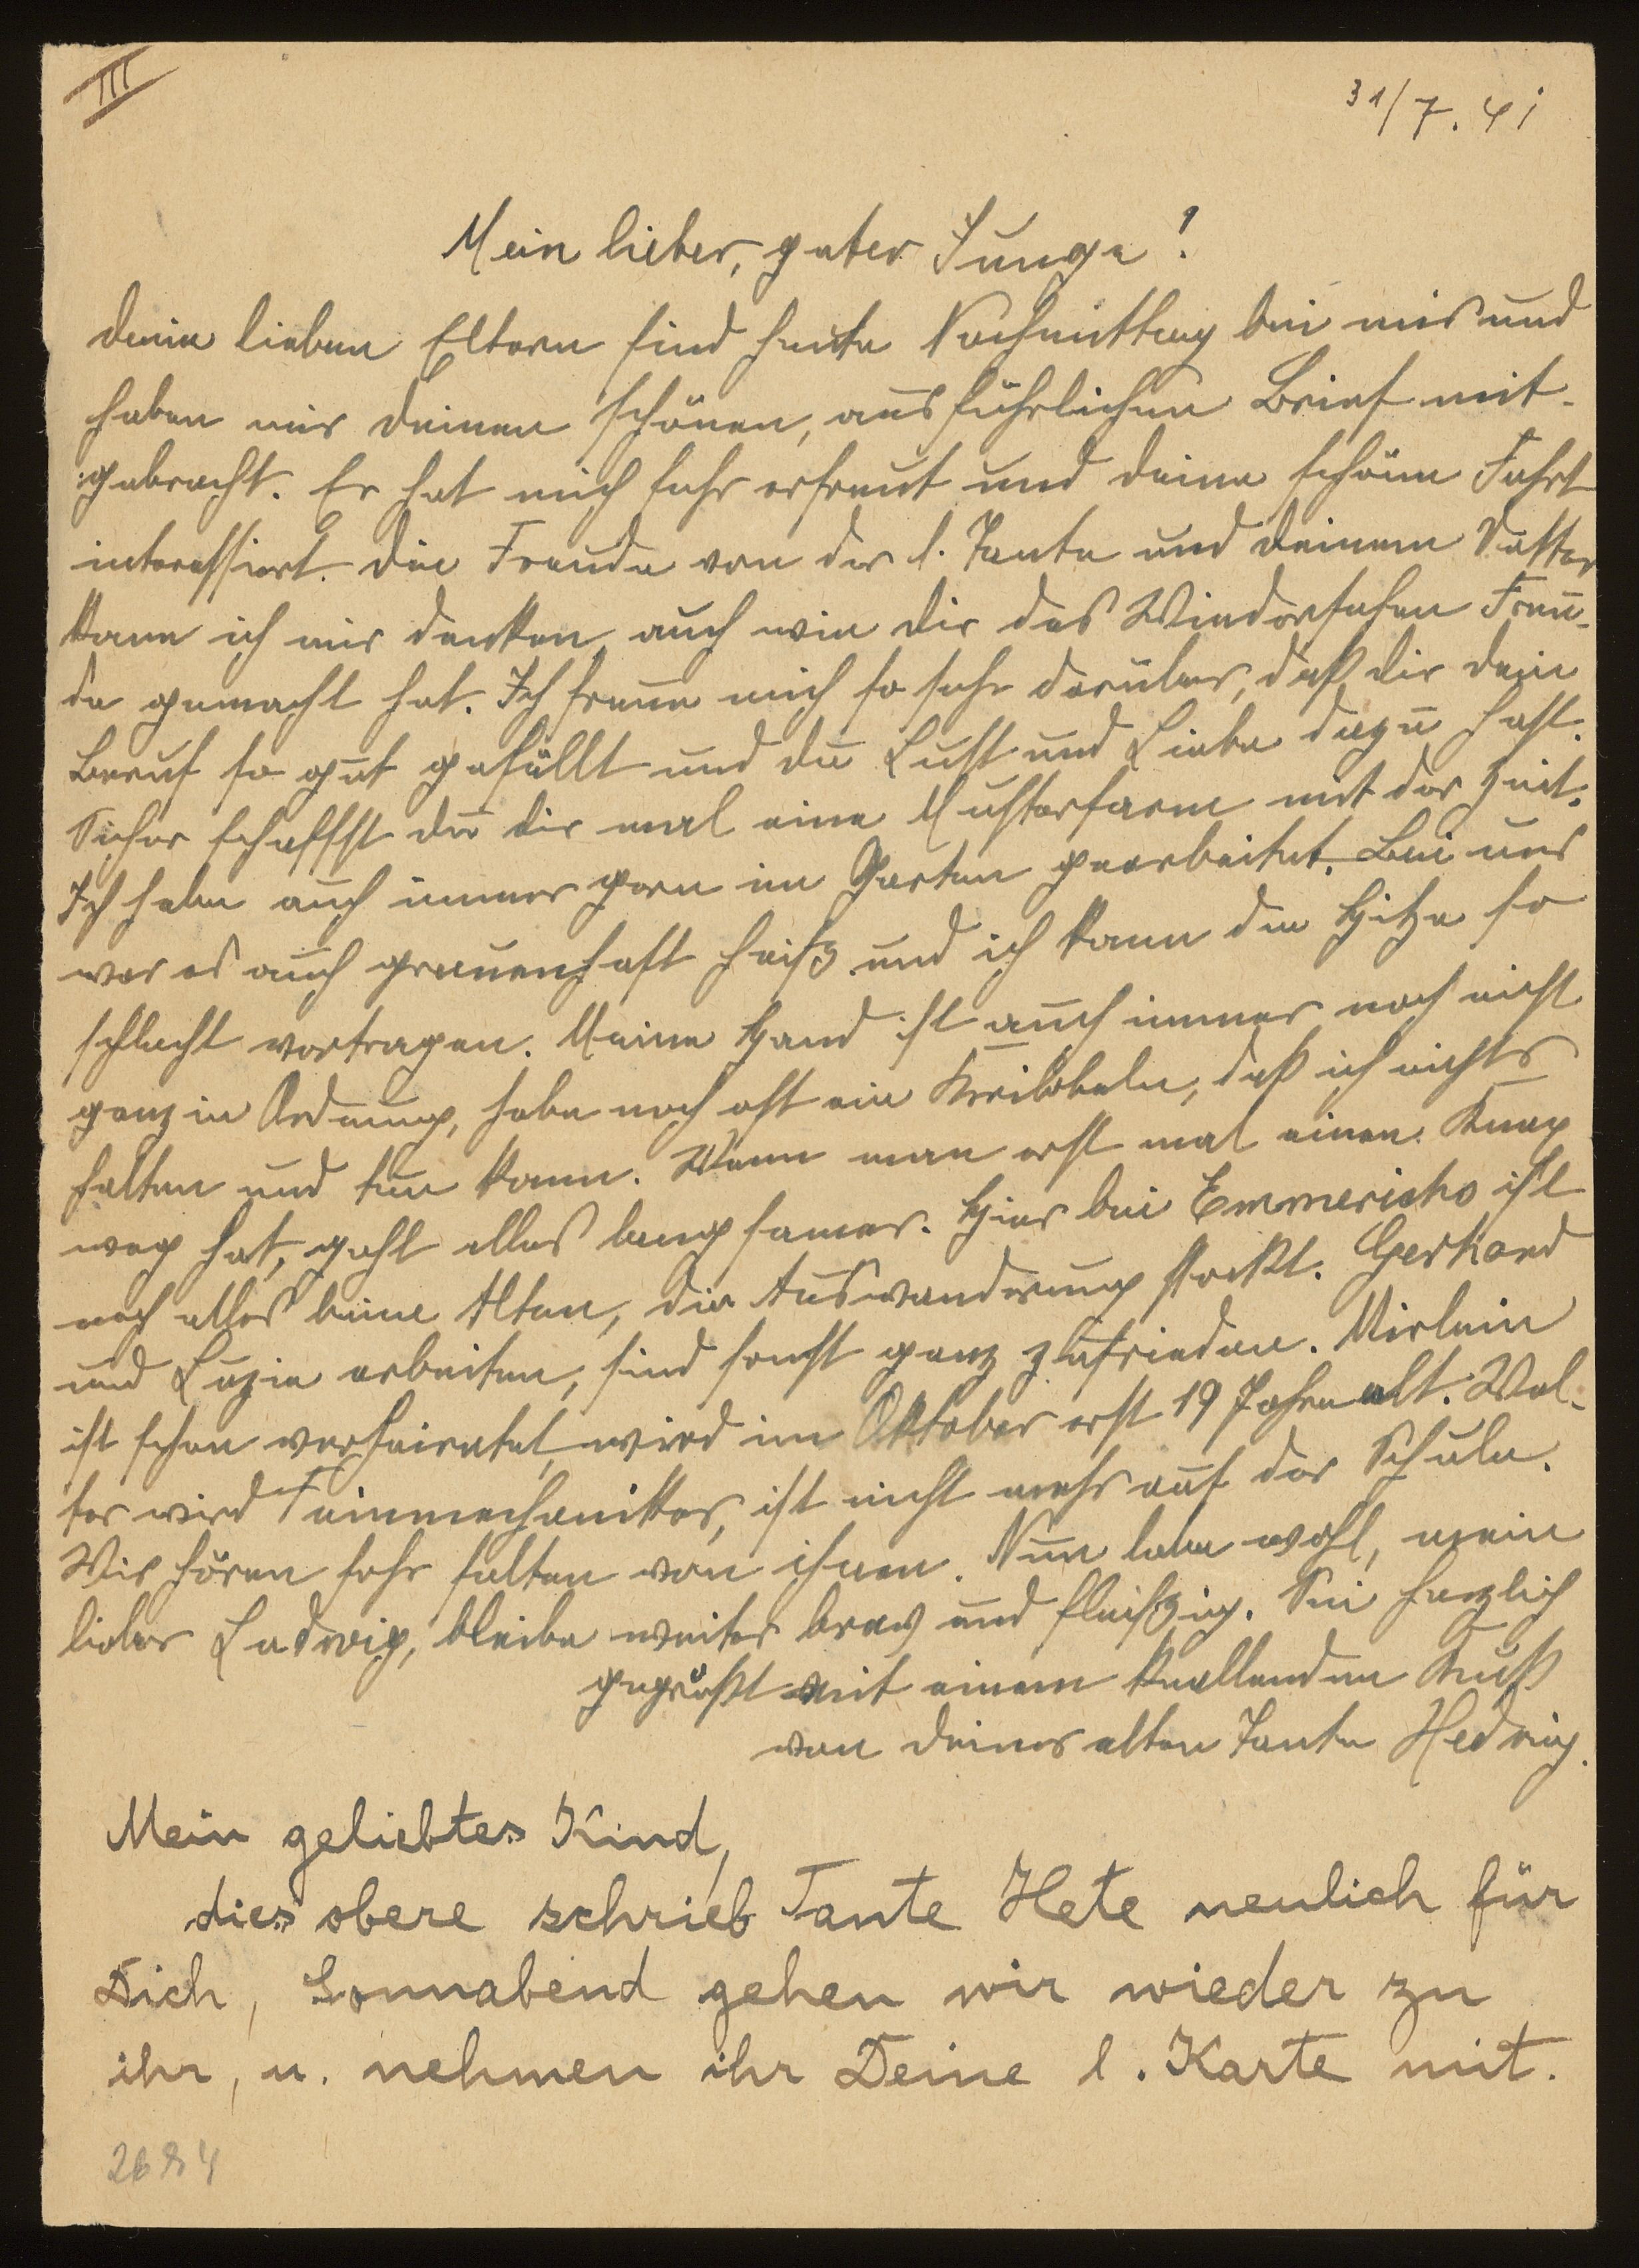 III
31/7. 41
Mein lieber, guter Junge!
deine lieben Eltern sind heute Nachmittag bei mir und
haben mir deinen schönen, ausführlichen Brief mit-
gebracht. Er hat mich sehr erfreut und deine schöne Fahrt
interessiert. Die Freude von der l. Tante und deinem Vetter
kann ich mir denken, auch wie dir das Wiedersehen Freu-
de gemacht hat. Ich freue mich so sehr darüber, daß dir dein
Beruf so gut gefällt und du Lust und Liebe dazu hast.
Sicher schaffst du dir mal eine Musterfarm mit der Zeit.
Ich habe auch immer gern im Garten gearbeitet. Bei uns
war es auch grauenhaft heiß und ich kann die Hitze so
schlecht vertragen. Meine Hand ist auch immer noch nicht
ganz in Ordnung, habe noch oft ein Kribbeln, daß ich nichts
halten und tun kann. Wenn man erst mal einen Knax
weg hat, geht alles langsamer. Hier bei Emmerichs ist
noch alles beim Alten, die Auswanderung stockt. Gerhard
und Luzie arbeiten, sind sonst ganz zufrieden. Mirlein
ist schon verheiratet, wird im Oktober erst 19 Jahre alt. Wal-
ter wird Feinmechaniker, ist nicht mehr auf der Schule.
Wir hören sehr selten von ihnen. Nun lebe wohl, mein
lieber Ludwig, bleibe weiter brav und fleißig. Sei herzlich
gegrüßt mit einem knallenden Kuß
von deiner alten Tante Hedwig.
Mein geliebtes Kind,
dies obere schrieb Tante Hete neulich für
Dich, Sonnabend gehen wir wieder zu
ihr, u. nehmen ihr Deine l. Karte mit.